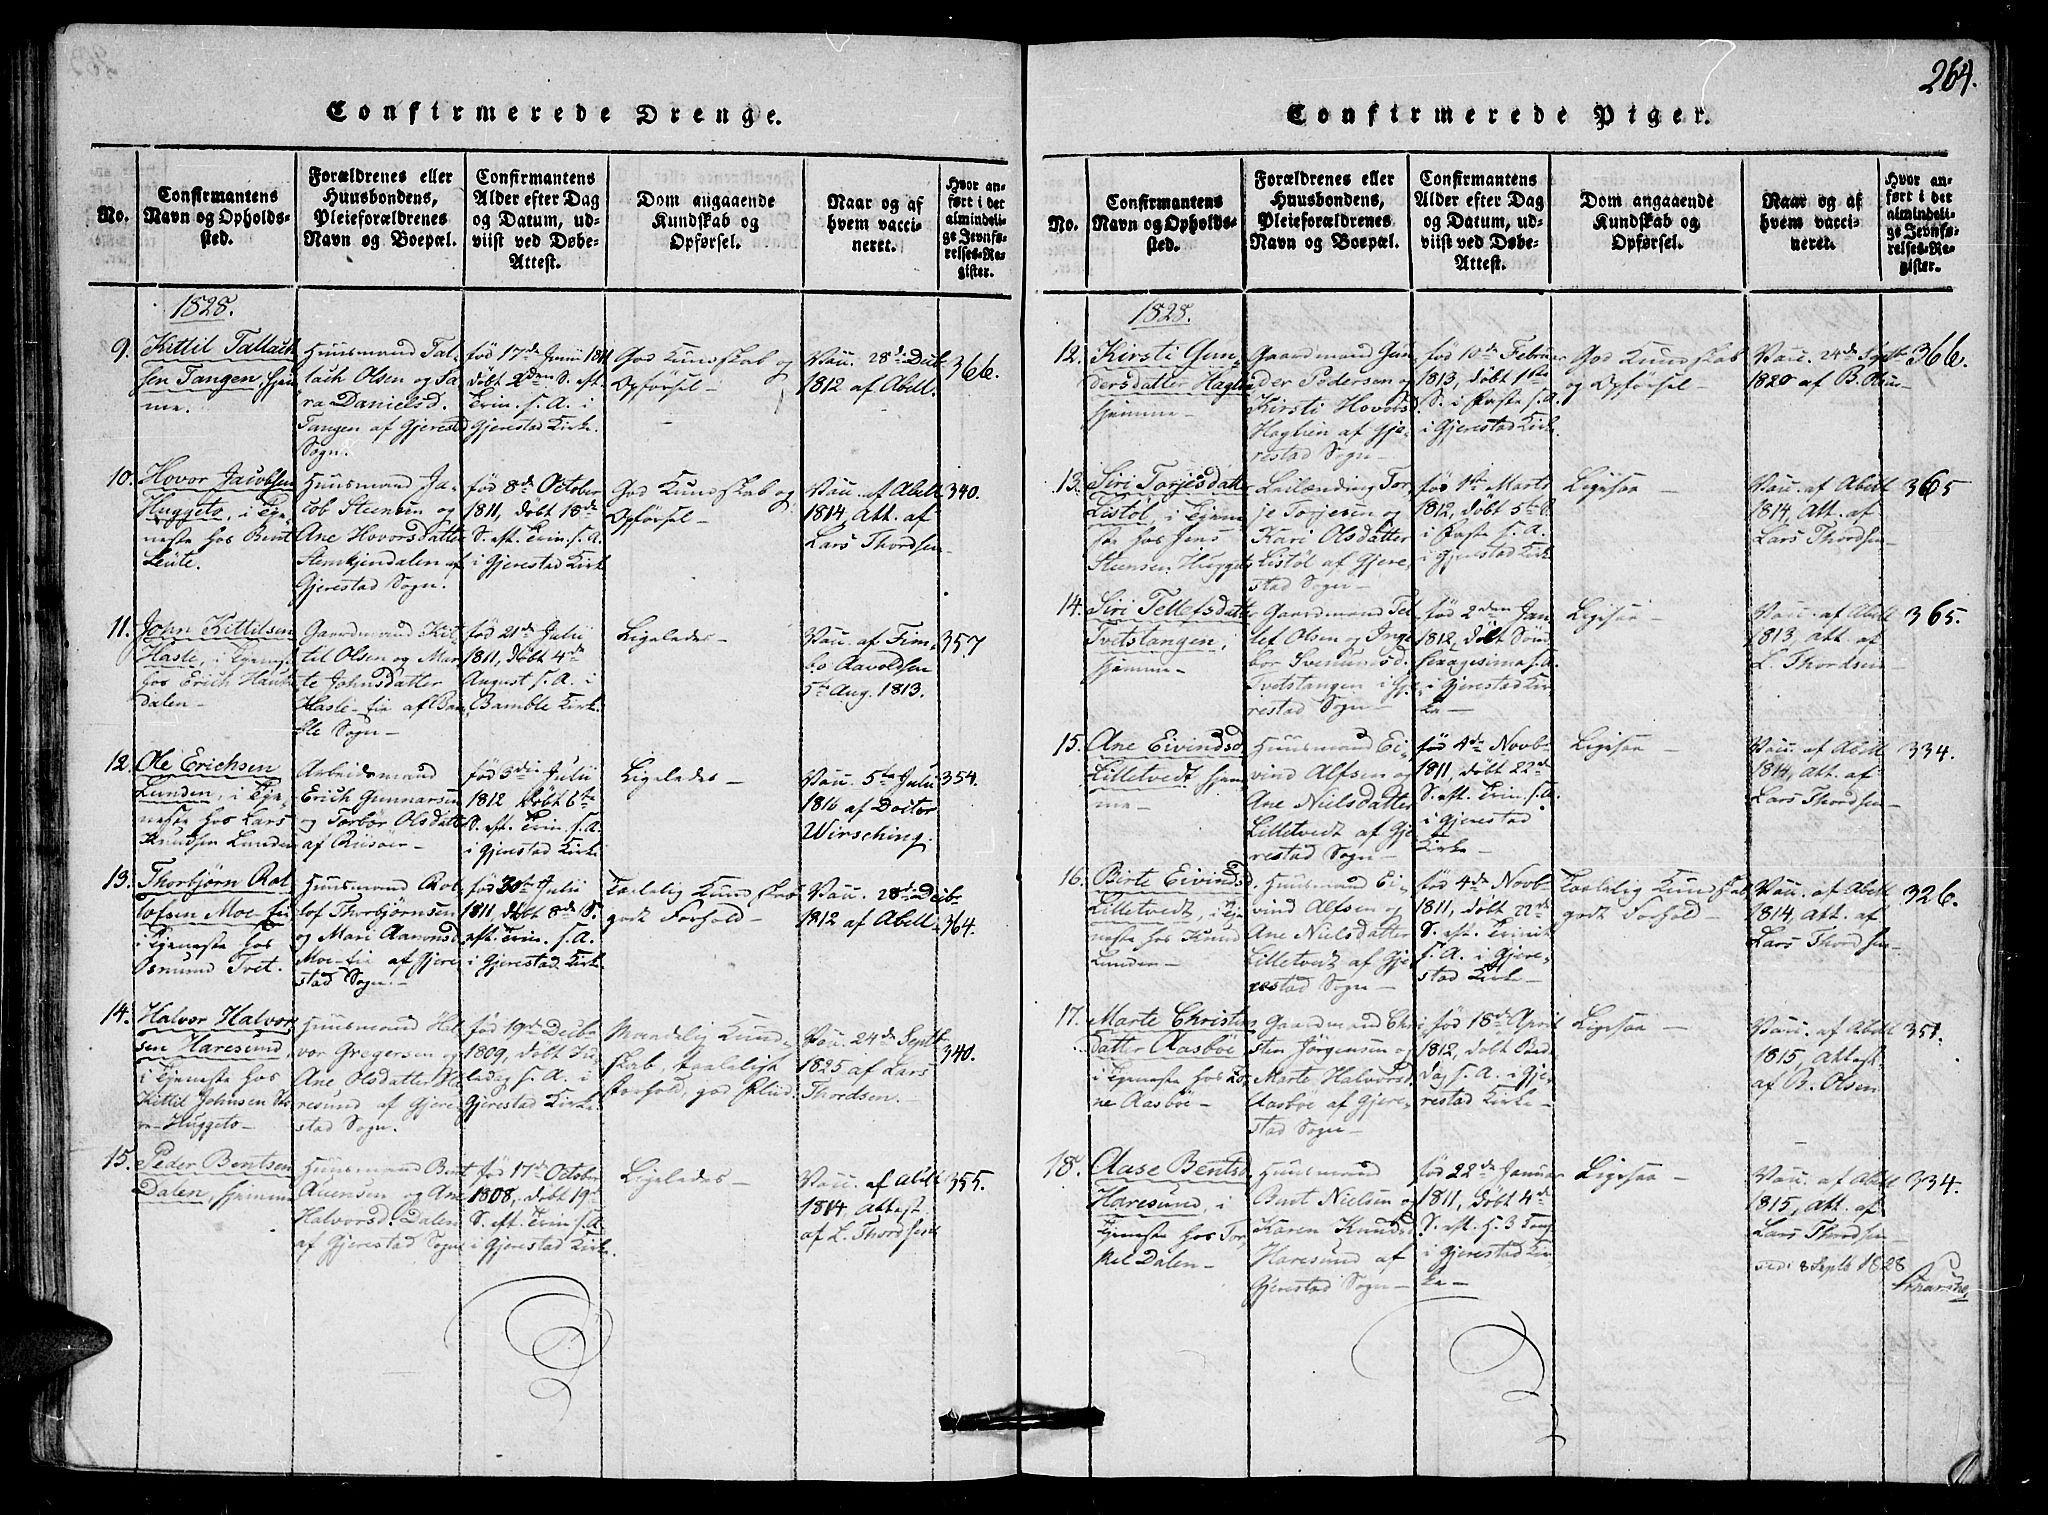 264.
Confirmerede Drenge.
No.
Confirmantens
Navn og Opholds-
sted.
Forældrenes eller
Huusbondens,
Pleieforældrenes
Navn og Boepæl.
Confirmantens
Alder efter Dag
og Datum, ud-
viist ved Døbe-
Attest.
Dom angaaende
Kundskab og
Opførsel.
Naar og af
hvem vacci-
neret.
Hvor an-
ført i det
almindeli-
ge Jevnfø-
relses-Re-
gister.
1828.
9.
Kittil Tallach
sen Tangen, hjem-
me.
Huusmand Tal-
lach Olsen og Sa-
ra Danielsd.
Tangen af Gjerestad
Sogn.
fød 17de Junii 1811
døbt 2den S. eft.
Trin. s. A. i
Gjerestad Kirke.
God Kundskab og
Opførsel -
Vacc. 28de Decb
1812 af Abell.
366.
10.
Hovor Jacobsen
Huggeto, i Tje-
neste hos Bent
Leite.
Huusmand Ja-
cob Steensen og
Ane Hovorsdatter
Stemkjendalen af
Gjerestad Sogn.
fød 8de October
1811, døbt 18de
S. eft. Trin. s. A.
i Gjerestad Kirk
God Kundskab og
Opførsel -
Vacc. af Abell
1814, Att. af
Lars Thordsen -
340.
11.
John Kittilsen
Hasle, i Tjeneste
hos Erich Hauk-
dalen -
Gaardmand Kit-
til Olsen og Mar-
te Johnsdatter
Hasle-eie af Bam-
ble Sogn -
fød 21de Julii
1811, døbt 4de
August s. A. i
Bamble Kirke.
Ligeledes -
Vacc. af Fim-
bo Aavoldsen
5te Aug. 1813.
357
12.
Ole Erichsen
Lunden, i Tje-
neste hos Lars
Knudsen Lunden
Arbeidsmand
Erich Gunnarsen
og Torbør Olsdatter
af Riisøer -
fød 3die Julii
1812 døbt 6te
S. eft. Trin. s. A.
i Gjerestad Kirke
Ligeledes -
Vacc. 5te Julii
1816 af Doctor
Wirsching.
354.
13.
Thorbjørn Rol-
lofsen Moe-Eie
i Tjeneste hos
Osmund Tvet.
Huusmand Rol-
lof Thorbjørnsen
og Mari Aamonsd
Moe-Eie af Gjere-
stad Sogn. -
fød 30te Julii
1811 døbt 8de S.
eft. Trin. s. A.
i Gjerestad Kirke
Taalelig Kundskab
godt Forhold -
Vacc. 28de Decb.
1812 af Abell -
364.
14.
Halvor Halvor-
sen Haresund,
i Tjeneste hos
Kittil Johnsen
Huggeto -
Huusmand Hal-
vor Gregersen og
Ane Olsdatter Ha-
resund af Gjere-
stad Sogn.
fød 19de Decbr
1809, døbt Jule-
dag s. A. i
Gjerestad Kirke
Maadelig Kund-
skab, taaleligt
Forhold, god Fliid
Vacc. 24de Septb
1825 af Lars
Thordsen. -
340.
15.
Peder Bentsen
Dalen, hjemme
Huusmand Bent
Aanensen og Ane
Halvorsd. Dalen
af Gjerestad Sogn
fød 17de October
1808, døbt 19de
S. eft. Trin. s. A.
i Gjerestad Kirke.
Ligeledes -
Vacc. af Abell
1814, Attest.
af L. Thordsen
355.
Confirmerede Piger.
No.
Confirmantens
Navn og Opholds-
sted.
Forældrenes eller
Huusbondens,
Pleieforældrenes
Navn og Boepæl.
Confirmantens
Alder efter Dag
og Datum, ud-
viist ved Døbe-
Attest.
Dom angaaende
Kundskab og
Opførsel.
Naar og af
hvem vacci-
neret.
Hvor an-
ført i det
almindeli-
ge Jevnfø-
relses-Re-
gister.
1828.
12.
Kirsti Gun-
dersdatter Haglien
hjemme -
Gaardmand Gun-
der Pedersen og
Kirsti Hovorsd
Haglien af Gje-
restad Sogn -
fød 10de Februar
1813, døbt 1ste
S. i Faste s. A.
i Gjerestad Kirk.
God Kundskab
og Opførsel -
Vacc. 24de Septb
1820 af B. Olsen -
366.
13.
Siri Torjesdatter
Listøl, i Tjene-
ste hos Jens
Steensen Huggeto
Leilænding Tor-
je Torjesen og
Kari Olsdatter
Listøl af Gjere-
stad Sogn -
fød 1ste Marts
1812, døbt 5te S.
i Faste s. A.
i Gjerestad Kirke
Ligesaa -
Vacc. af Abell
1814, Att. af
Lars Thordsen -
365
14.
Siri Tellefsdatter
Tvetstangen,
hjemme -
Gaardmand Tel-
lef Olsen og Inge-
bor Svenumsd.
Tvetstangen i Gje-
restad Sogn -
fød 2den Jan
1812, døbt Sønd
Sexagesima s. A.
i Gjerestad Kir-
ke -
Ligesaa -
Vacc. af Abell
1813. Att. af
L. Thordsen -
365.
15.
Ane Eivindsd.
Lilletvedt hjem-
me -
Huusmand Ei-
vind Alfsen og
Ane Nielsdatter
Lilletvedt af Gje-
restad Sogn -
fød 4de Novb.
1811, døbt 22de
S. eft. Trin. s. A.
i Gjerestad
Kirke -
Ligesaa -
Vacc. af Abell
1814, Att. af
Lars Thordsen -
334.
16.
Birte Eivindsd
Lilletvedt, i Tje-
neste hos Knud
Lunden -
Huusmand Ei-
vind Alfsen og
Ane Nielsdatter
Lilletvedt af Gje-
restad Sogn -
fød 4de Novb
1811, døbt 22de
S. eft. Trinit
s. A. i Gjere-
stad Kirke -
Taalelig Kundskab
godt Forhold -
Vacc. af Abell
1814, Att. af
Lars Thordsen -
326.
17.
Marte Christen-
datter Aasbøe
i Tjeneste hos
Aasbøe -
Gaardmand Chri-
sten Jørgensen og
Marte Halvorsd
Aasbøe af Gjere-
stad Sogn -
fød 18de April
1812, døbt Bede-
dag s. A. i Gje-
restad Kirke -
Ligesaa -
Vacc. af Abell
1815, Attest.
af B. Olsen
351.
18.
Aase Bentsd
Haresund, i
Tjeneste hos Tor-
kel Dalen -
Huusmand
Bent Nielsen og
Karen Knudsd
Haresund af
Gjerestad Sogn -
fød 22de Januar
1811, døbt 4de
S. eft. H. 3 Kong.
i Gjerestad Kir-
ke -
Ligesaa -
Vacc. af Abell
1815, Att. af
Lars Thordsen -
334.
8 Septb 1828